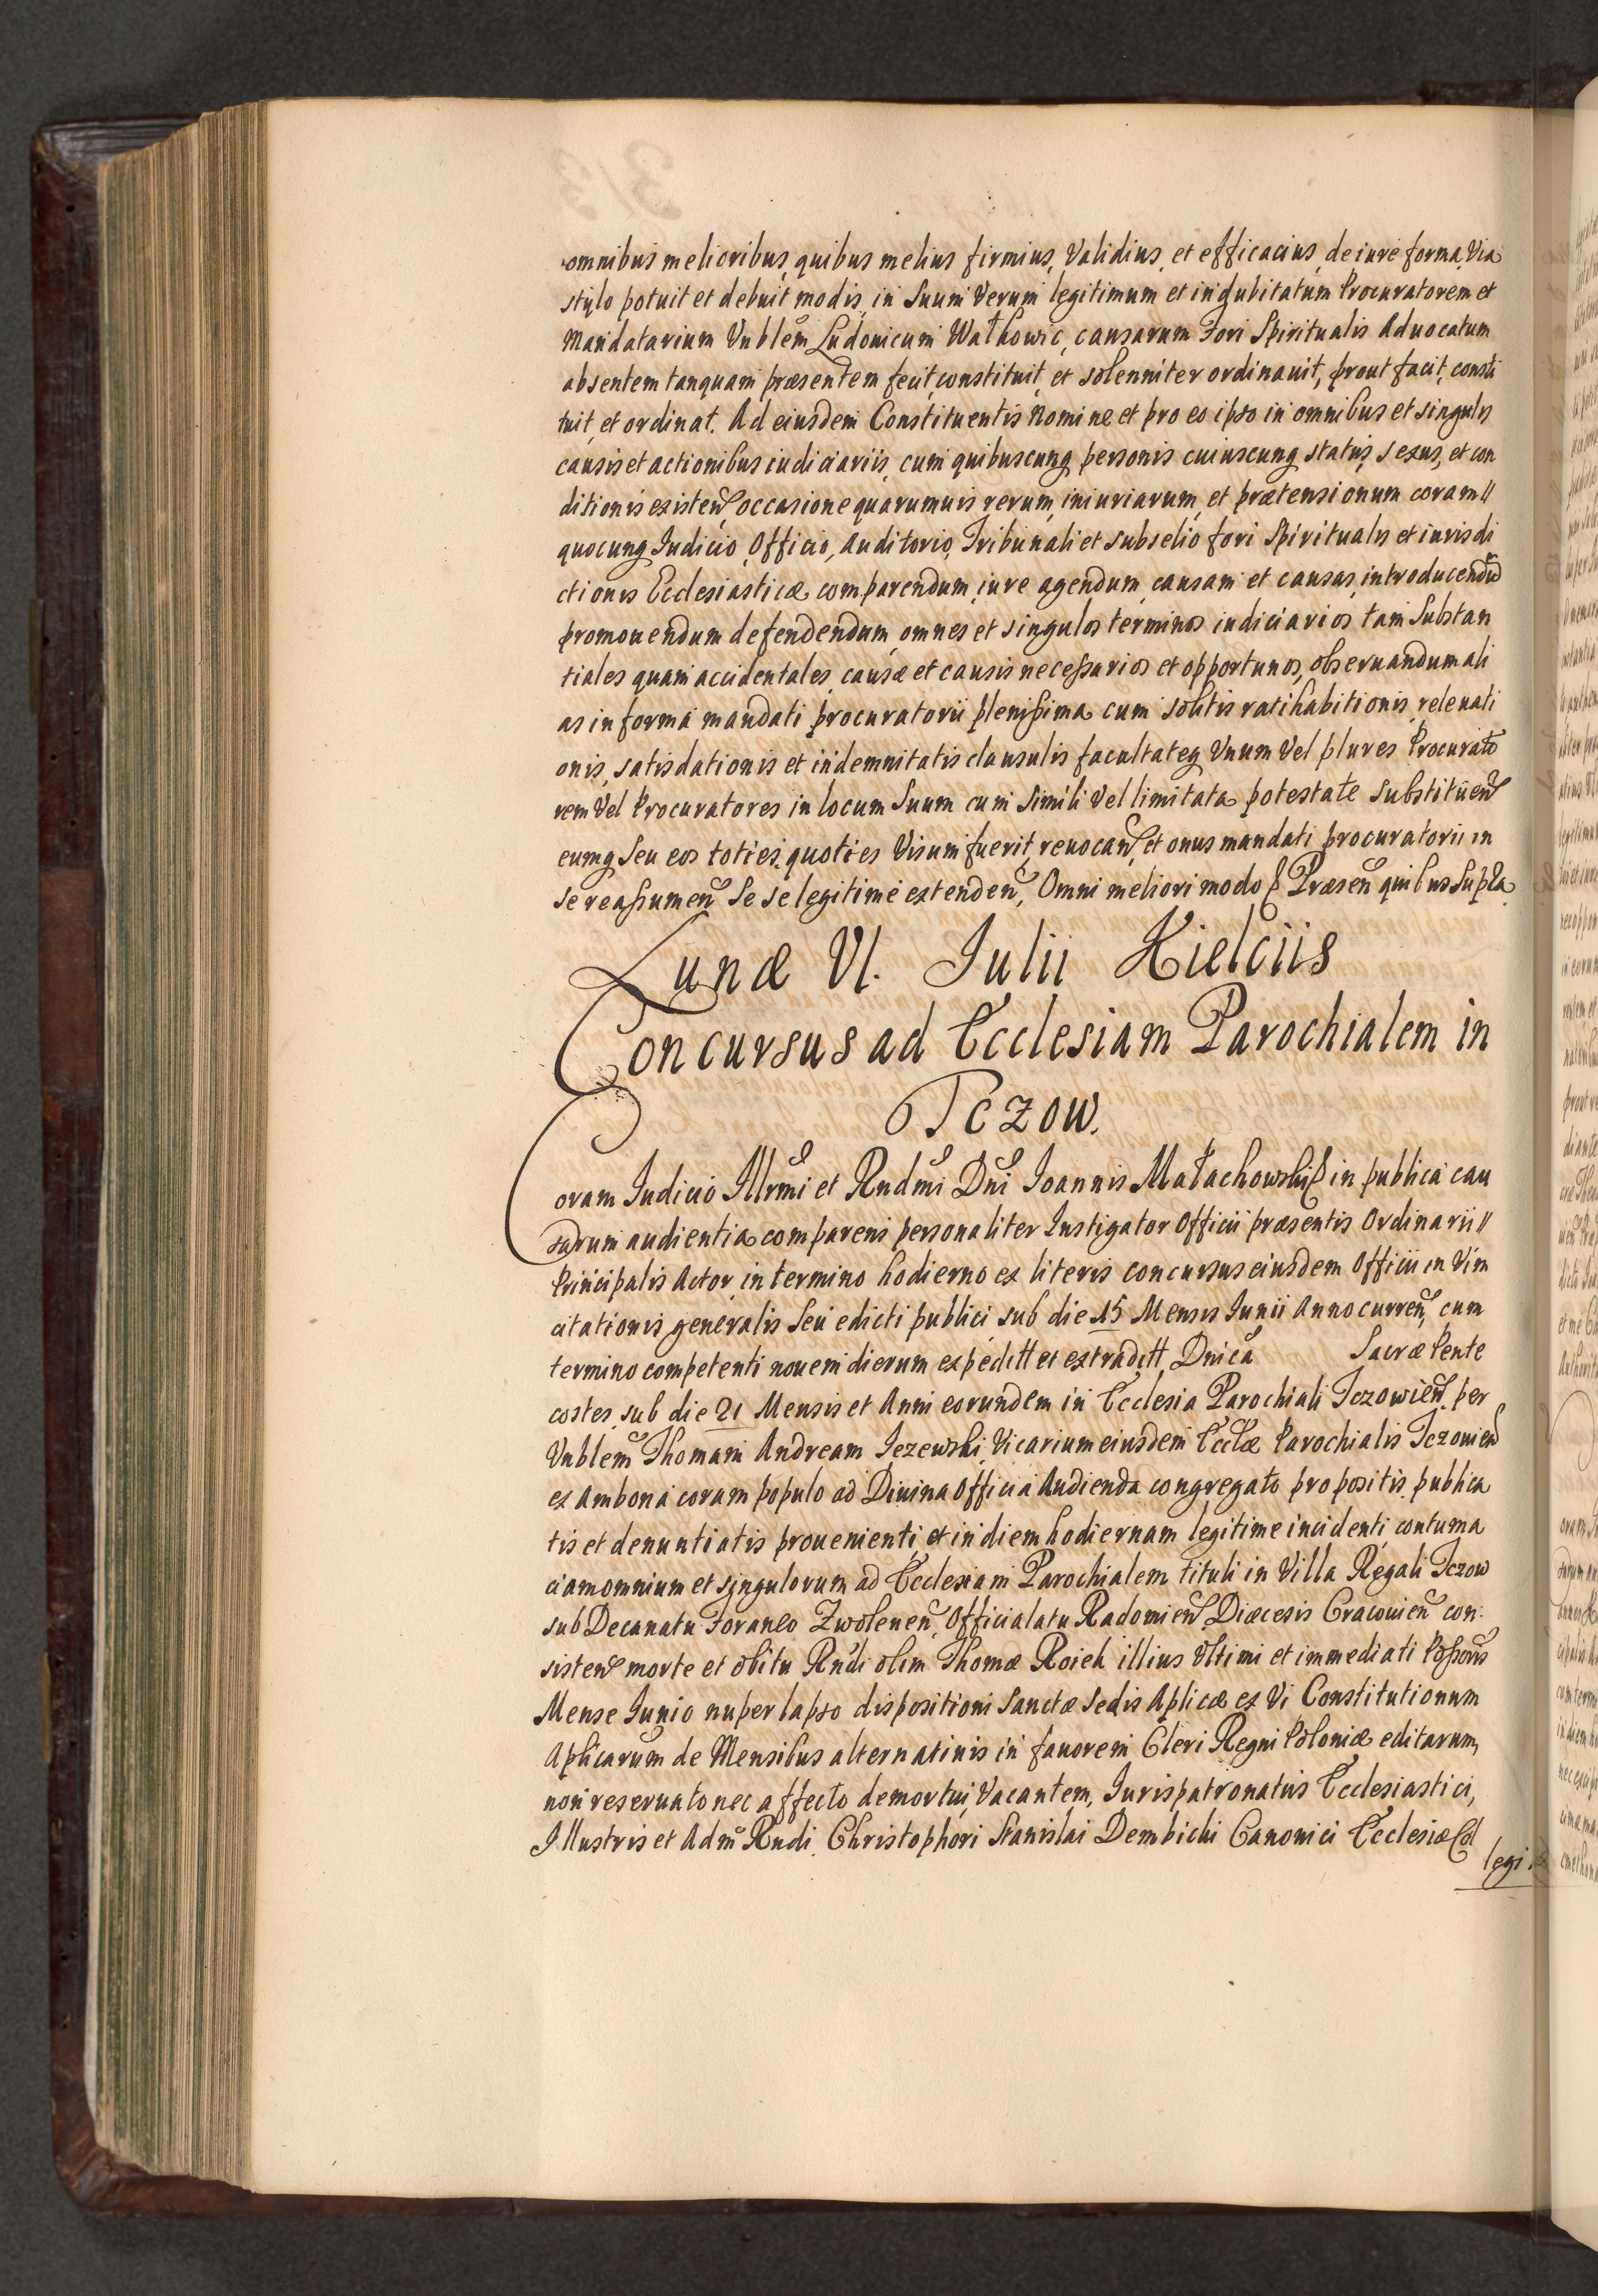 omnibus melioribus, quibus melius firmius, Validius, et efficacius, de iure forma, Via
stylo potuit et debuit modis, in Suum Verum legitimum et indubitatum Procuratorem et
Mandatarium Vnblem Ludouicum Wałkowic, causarum Fori Spiritualis Aduocatum
absentem tanquam præsentem fecit, constituit, et solenniter ordinauit, prout facit, consti
tuit, et ordinat. Ad eiusdem Constituentis Nomine et pro eo ipso in omnibus et singulis
causis et actionibus iudiciariis, cum quibuscunq personis cuiuscunq status, sexus, et con
ditionis existen occasione quarumuis rerum, iniuriarum, et prætensionum coram //
quocunq Iudicio, Officio, Auditorio, Tribunali et subselio fori Spiritualis et iurisdi
ctionis Ecclesiasticæ comparendum, iure agendum, causam et causas, introducendũ
promouendum defendendum, omnes et singulos terminos iudiciarios, tam Substan
tiales quam accidentales, causæ et causis necessarios et opportunos, obseruandum ali
as in forma mandati procuratorii plenissima cum solitis ratihabitionis, releuati
onis, satisdationis et indemnitatis clausulis facultateq Vnum Vel plures Procurato
rem Vel Procuratores in locum Suum cum Simili Vel limitata potestate Substituen
eumq Seu eos toties, quoties Visum fuerit, reuocan, et onus mandati procuratorii in
se reassumen Se se legitime extenden, Omni meliori modo Præsen quibus Supra
Lunæ VI. Iulii Kielciis
Concursus ad Ecclesiam Parochialem in
Tczow.
Coram Iudicio Illrmi et Rndmi Dni Ioannis Małachowski in publica cau
sarum audientia comparens personaliter Instigator Officii præsentis Ordinarii //
Principalis Actor, in termino hodierno ex literis concursus eiusdem Officii in Vim
citationis generalis Seu edicti publici sub die 15 Mensis Iunii Anno curren, cum
termino competenti nouem dierum expeditt et extraditt, Dnica Sacræ Pente
costes, sub die 21 Mensis et Anni eorundem in Ecclesia Parochiali Tczowien, per
Vnblem Thomam Andream Jezewski, Vicarium eiusdem Ecclæ Parochialis Tczouien
ex Ambona coram populo ad Diuina Officia Audienda congregato propositis, publica
tis et denuntiatis prouenienti, et in diem hodiernam legitime incidenti, contuma
ciam omnium et singulorum ad Ecclesiam Parochialem tituli in Villa Regali Tczow
sub Decanatu Foraneo Zwolenen, Officialatu Radomien, Diæcesis Cracouien con:
sisten morte et obitu Rndi olim Thomæ Roieh illius Vltimi et immediati Possoris
Mense Iunio nuper lapso dispositioni Sanctæ Sedis Aplicæ ex Vi Constitutionum
Aplicarum de Mensibus alternatiuis in fauorem Cleri Regni Poloniæ editarum,
non reseruato nec affecto demortui, Vacantem, Iurispatronatus Ecclesiastici,
Illustris et Adm Rndi Christophori Stanislai Dembicki Canonici Ecclesiæ Col
legi